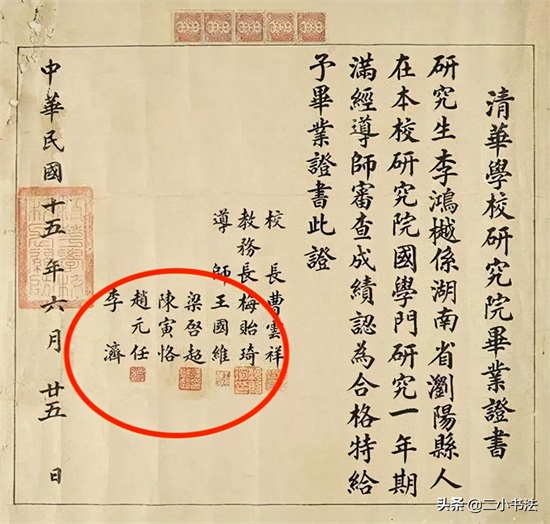 清華學校研究院畢業證書
研究生李鴻樾係湖南省瀏陽縣人
在本校研究院國學門研究一年期
滿經導師審查成績認為合格特給
予畢業證書此證
校長曹雲祥
教務長梅貽琦
導師王國維
梁啓超
陳寅恪
趙元任
李濟
中華民國十五年六月廿五日
头条@二小书法